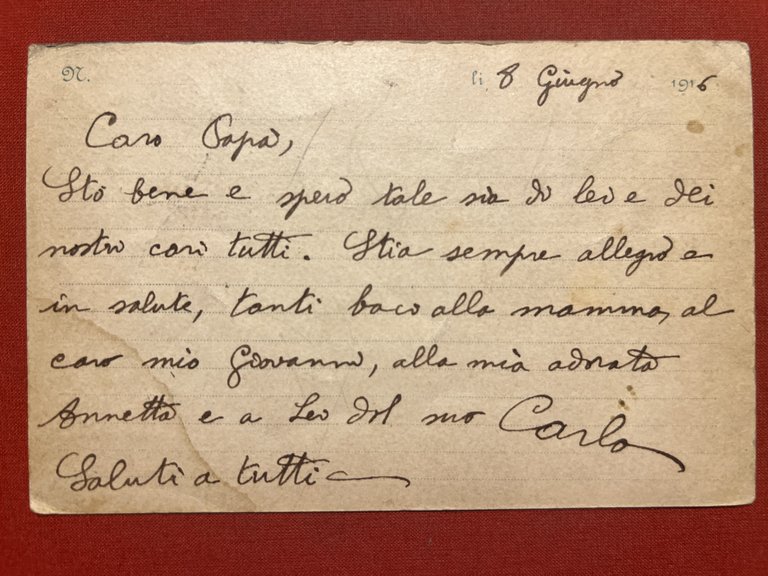 N. li, 8 Giugno 1916
Caro Papà,
Stò bene e sperò tale sia di lei e dei
nostri cari tutti. Stia sempre allegro e
in salute, tanti baci alla mamma, al
caro mio Giovanni, alla mia adorata
Annetta e a Lei dal suo Carlo
Saluti a tutti